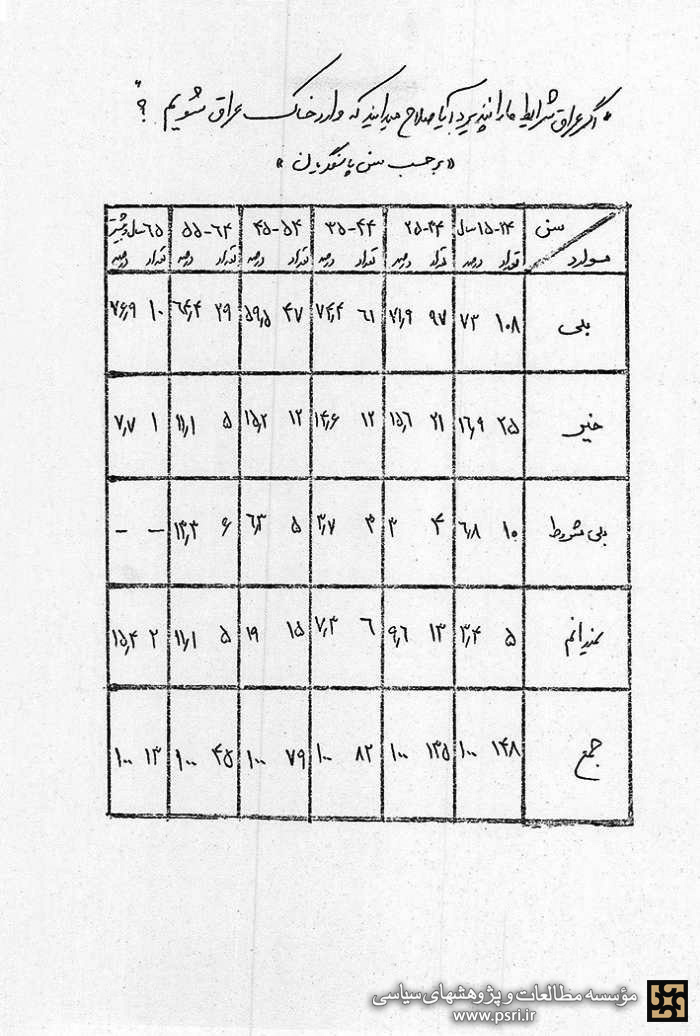 « اگر عراق شرایط ما را نپذیرد آیا صلاح میدانید که وارد خاک عراق شویم ؟ »
« برحسب سن پاسخگویان »
سن ۱۵-۲۴ سال ۲۵-۳۴ ۳۵-۴۴ ۴۵-۵۴ ۵۵-۶۴ ۶۵ سال و بیشتر
موارد تعداد درصد تعداد درصد تعداد درصد تعداد درصد تعداد درصد تعداد درصد
بلی ۱۰۸ ۷۳ ۹۷ ۷۱٫۹ ۶۱ ۷۴٫۴ ۴۷ ۵۹٫۵ ۲۹ ۶۴٫۴ ۱۰ ۷۶٫۹
خیر ۲۵ ۱۶٫۹ ۲۱ ۱۵٫۶ ۱۲ ۱۴٫۶ ۱۲ ۱۵٫۲ ۵ ۱۱٫۱ ۱ ۷٫۷
بلی مشروط ۱۰ ۶٫۸ ۴ ۳ ۳ ۳٫۷ ۵ ۶٫۳ ۶ ۱۳٫۳ – –
نمیدانم ۵ ۳٫۴ ۱۳ ۹٫۶ ۶ ۷٫۳ ۱۵ ۱۹ ۵ ۱۱٫۱ ۲ ۱۵٫۴
جمع ۱۴۸ ۱۰۰ ۱۳۵ ۱۰۰ ۸۲ ۱۰۰ ۷۹ ۱۰۰ ۴۵ ۱۰۰ ۱۳ ۱۰۰
مؤسسه مطالعات و پژوهشهای سیاسی
www.psri.ir